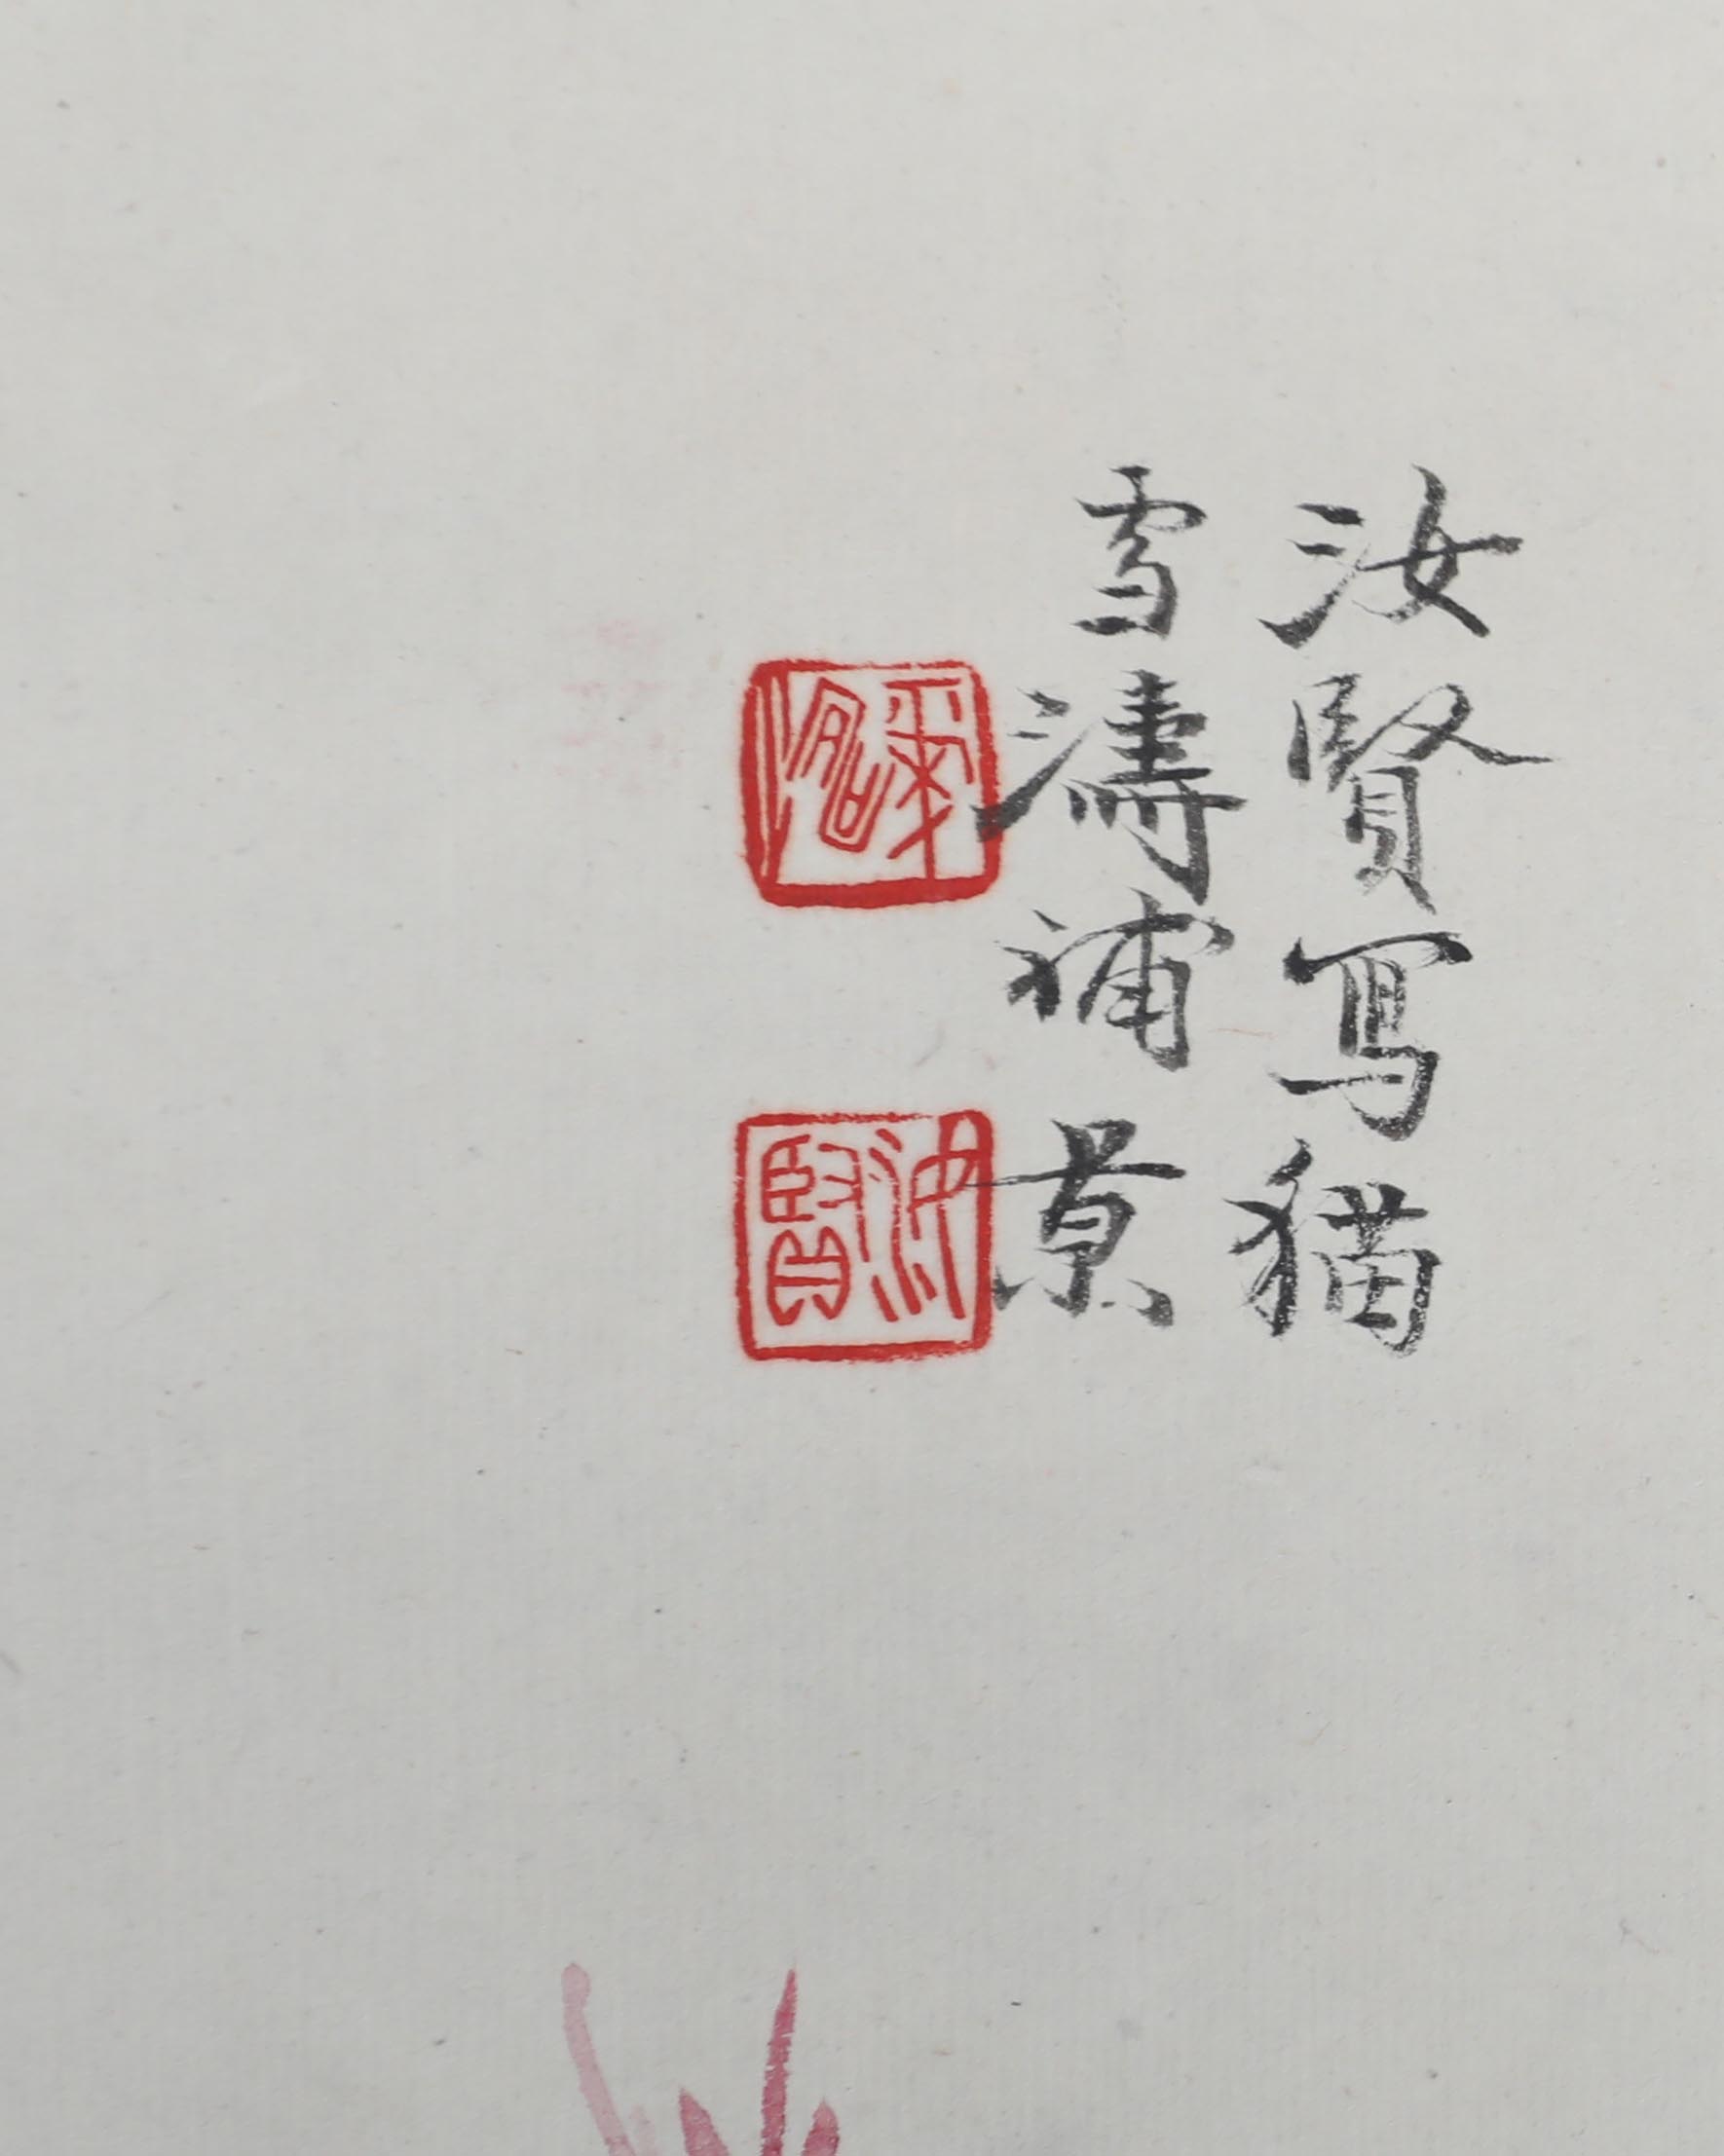 汝賢寫貓
雪濤補景
汝賢